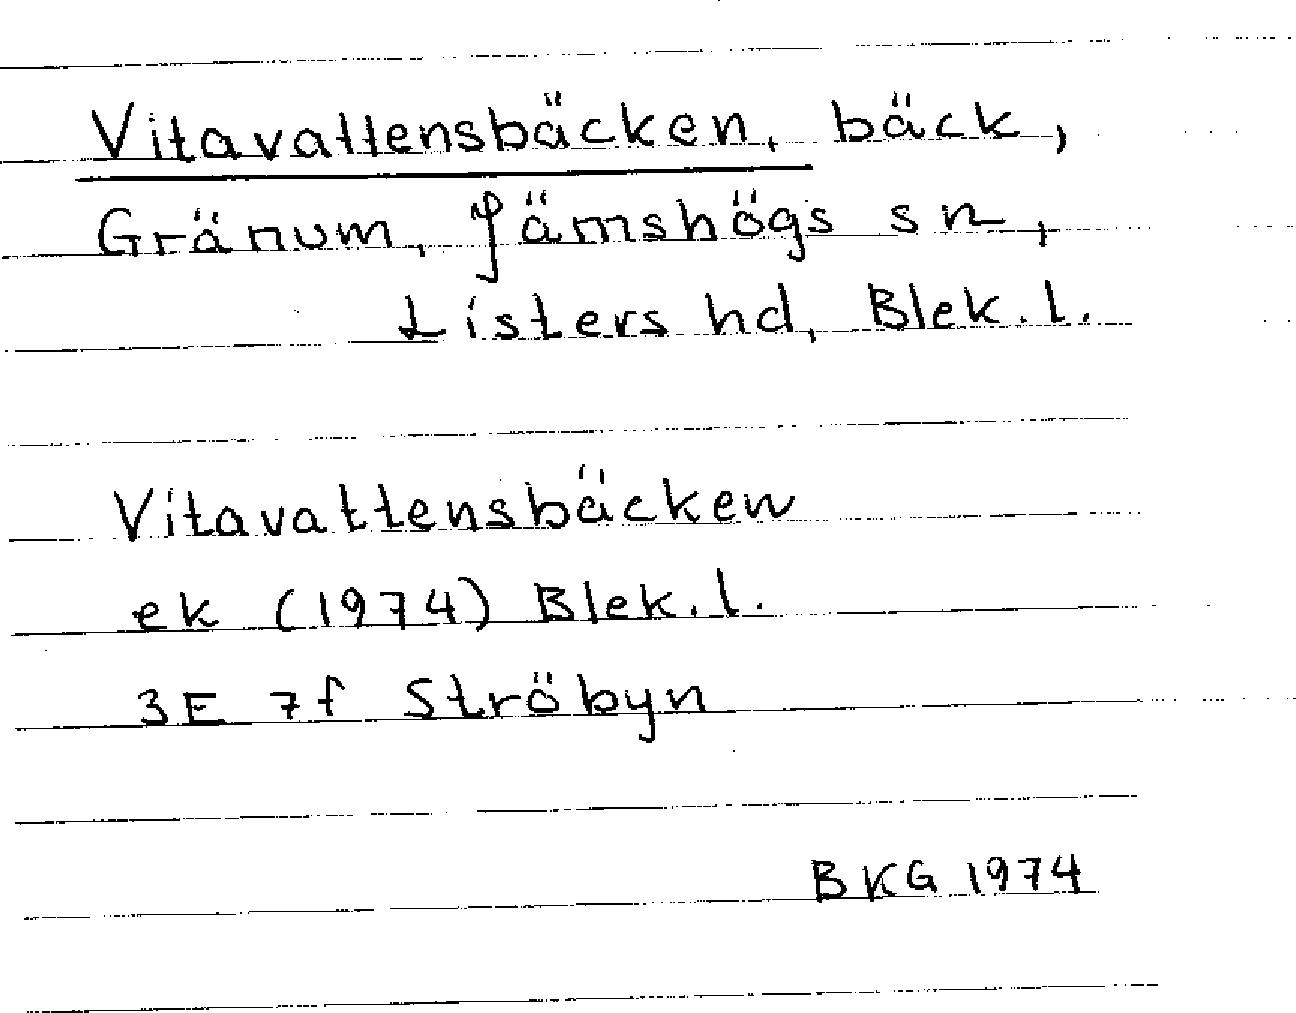 Vitavattensbäcken, bäck,
Gränum, Jämshögs sn,
Listers hd, Blek. l.
Vitavattensbäcken
ek (1974) Blek. l.
3E 7f Ströbyn
BKG 1974